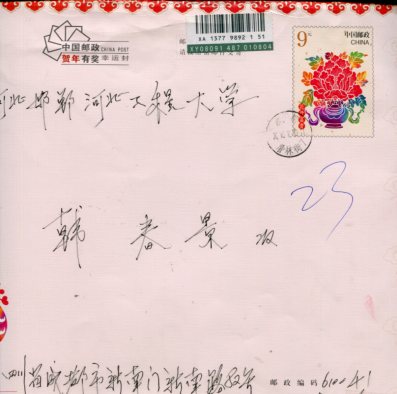 中国邮政 CHINA POST
贺年有奖 幸运封
XA 1377 9892 1 51
XY08091 487 010804
9元
中国邮政
CHINA
河北邯郸河北工程大学
23
韩春景 收
四川省成都市新南门新南路
邮政编码 610041